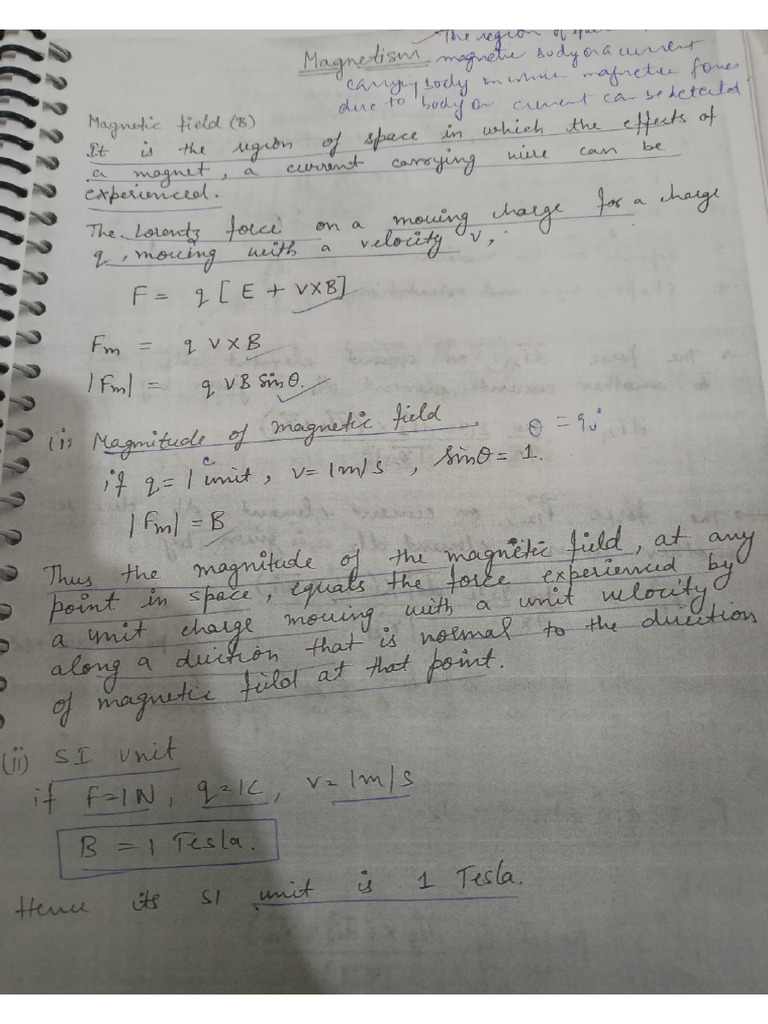 The region of space
Magnetism magnetic body or a current
carrying body in which magnetic forces
due to body or current can be detected.
Magnetic field (B)
It is the region of space in which the effects of
a magnet, a current carrying wire can be
experienced.
The Lorentz force on a moving charge for a charge
q, moving with a velocity v,
F = q [ E + V×B]
Fm = q V×B
|Fm| = q VB Sinθ.
(i) Magnitude of magnetic field θ = 90°
if q = 1 unit, V = 1m/s, Sinθ = 1.
|Fm| = B
Thus the magnitude of the magnetic field, at any
point in space, equals the force experienced by
a unit charge moving with a unit velocity
along a direction that is normal to the direction
of magnetic field at that point.
(ii) SI unit
if F=1N, q=1C, V=1m/s
B = 1 Tesla.
Hence its SI unit is 1 Tesla.